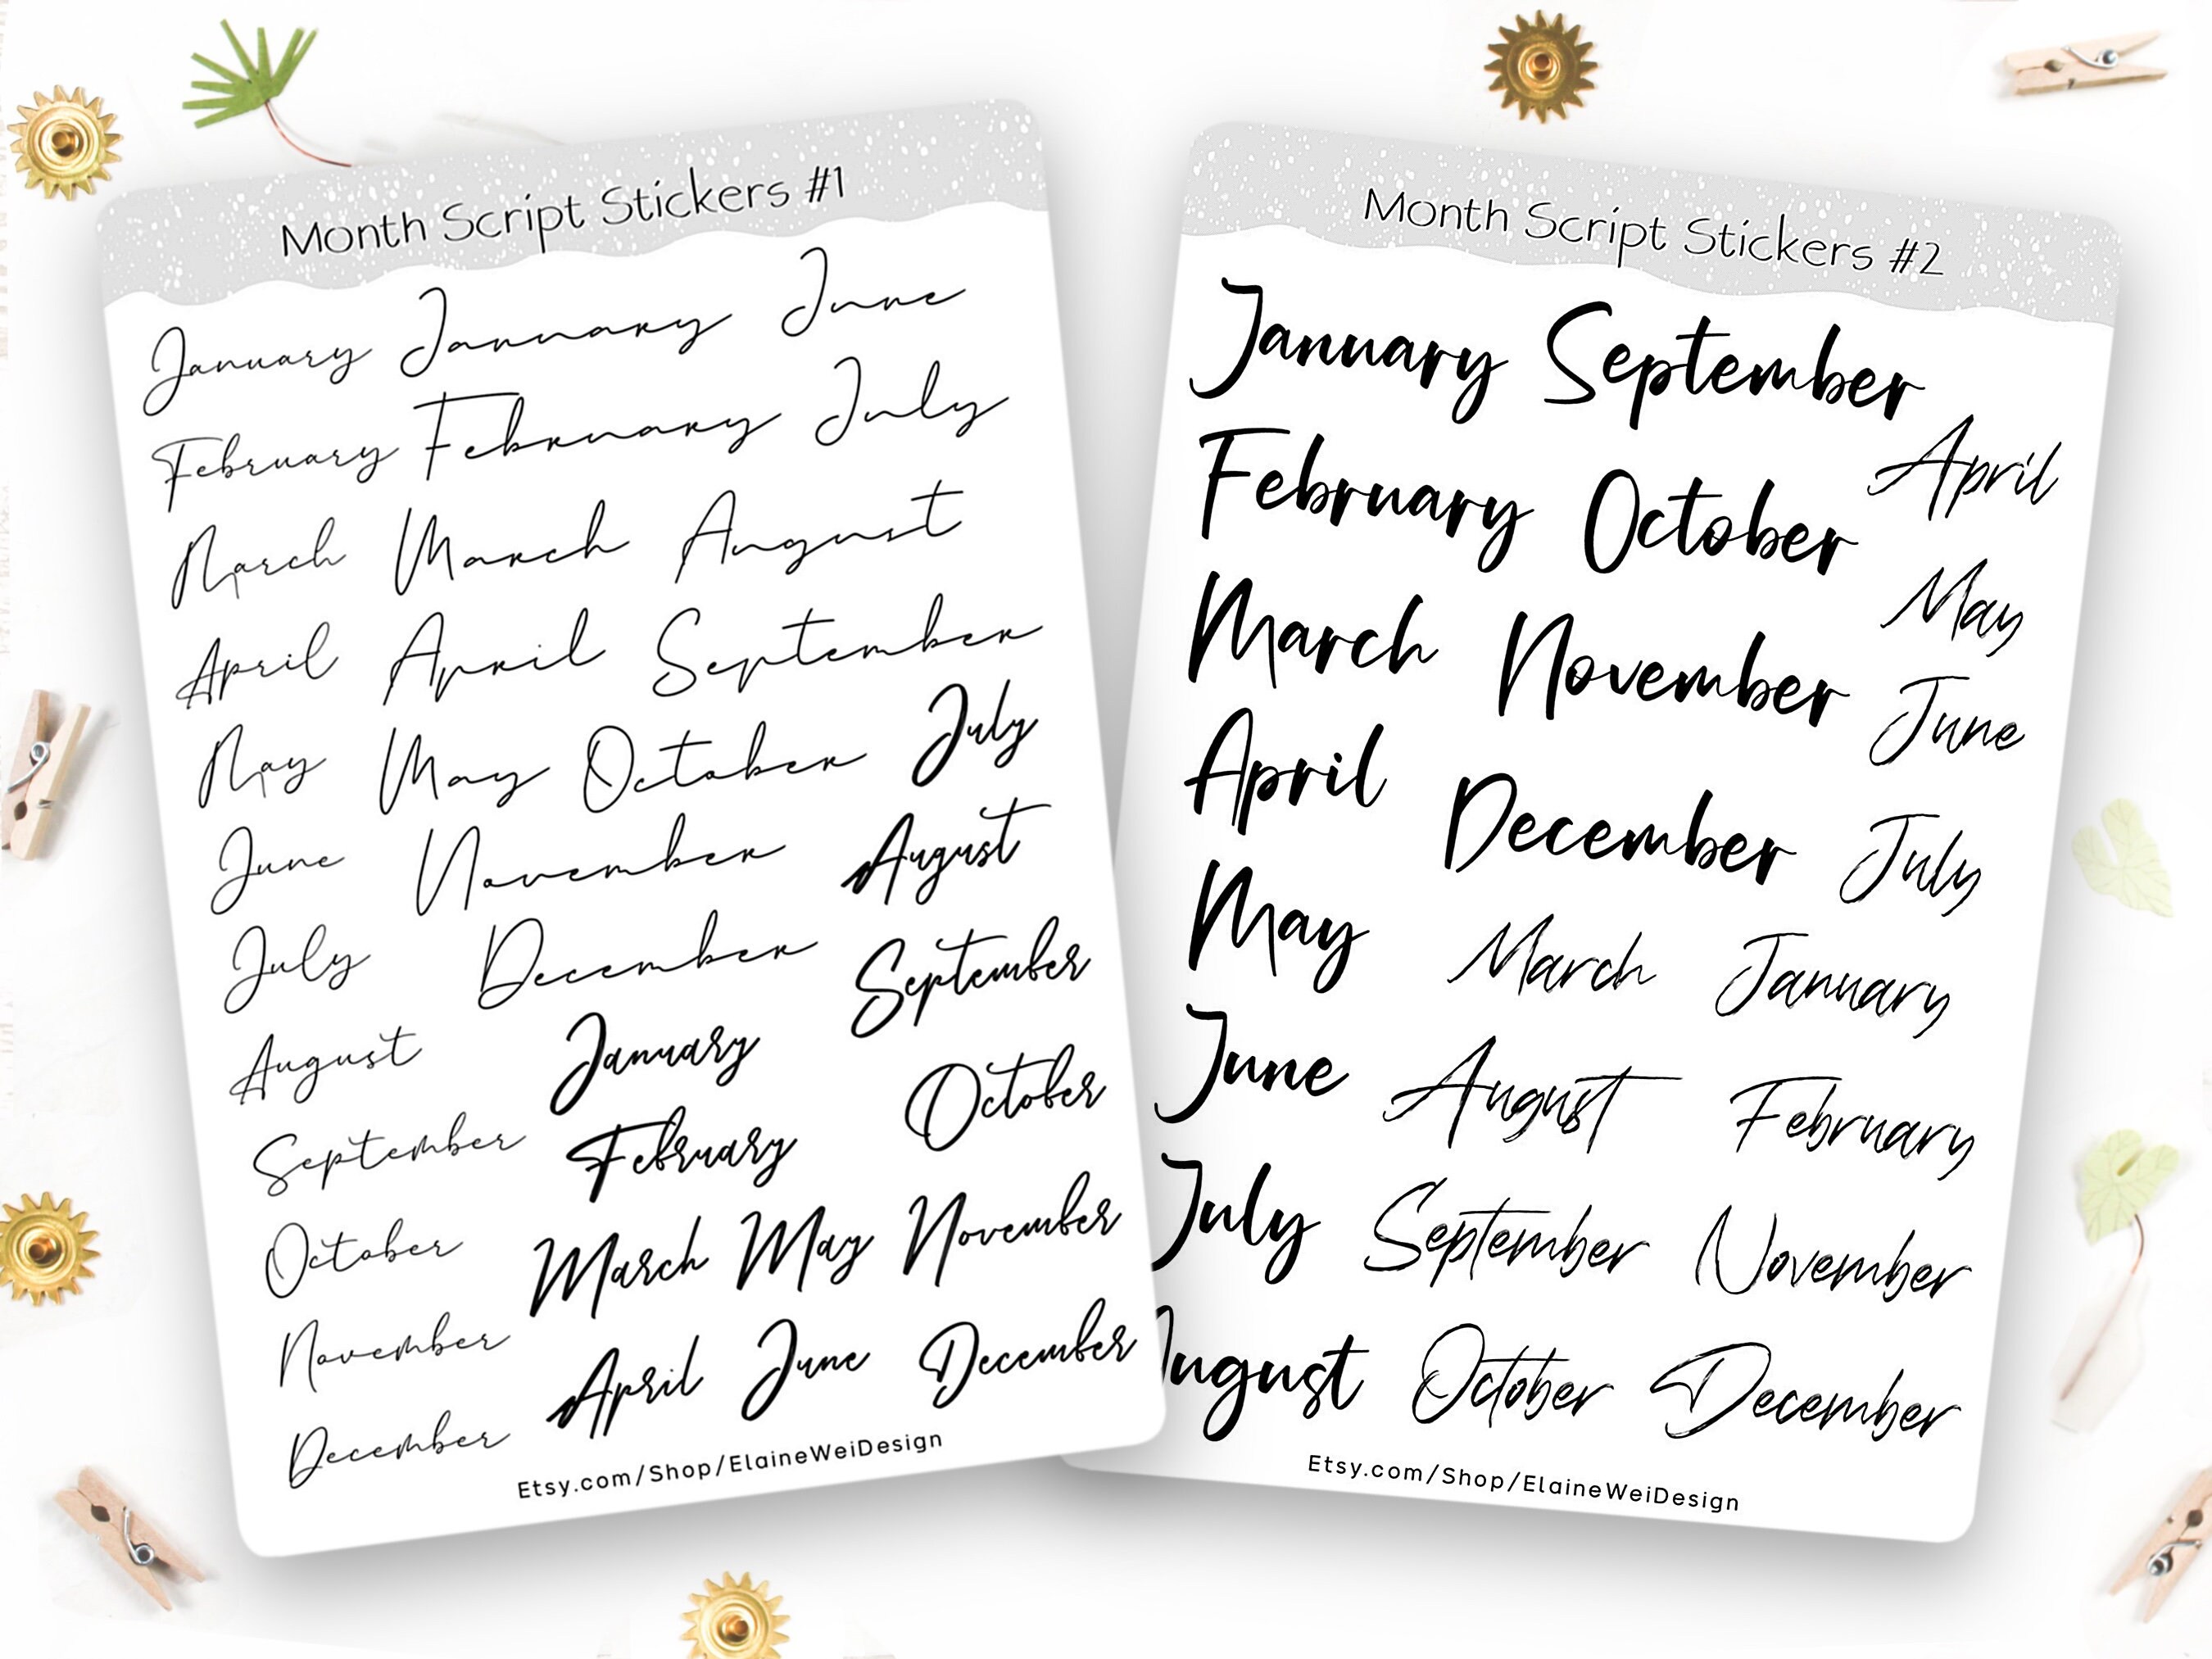 Month Script Stickers #1
January January June
February February July
March March August
April April September
May May October July
June November August
July December September
August January October
September February
October March May November
November April June December
December
Etsy.com/Shop/ElaineWeiDesign
Month Script Stickers #2
January September
February October April
March November May
April December June
May March January July
June August February
July September November
ugust October December
Etsy.com/Shop/ElaineWeiDesign